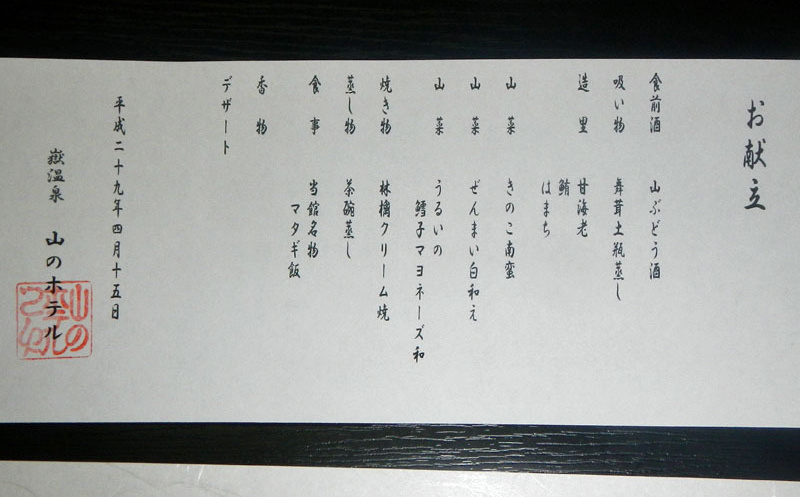 お献立
食前酒 山ぶどう酒
吸い物 舞茸土瓶蒸し
造里 甘海老
鮪
はまち
山菜 きのこ南蛮
山菜 ぜんまい白和え
山菜 うるいの
鱈子マヨネーズ和
焼き物 林檎クリーム焼
蒸し物 茶碗蒸し
食事 当館名物
マタギ飯
香物
デザート
平成二十九年四月十五日
嶽温泉 山のホテル